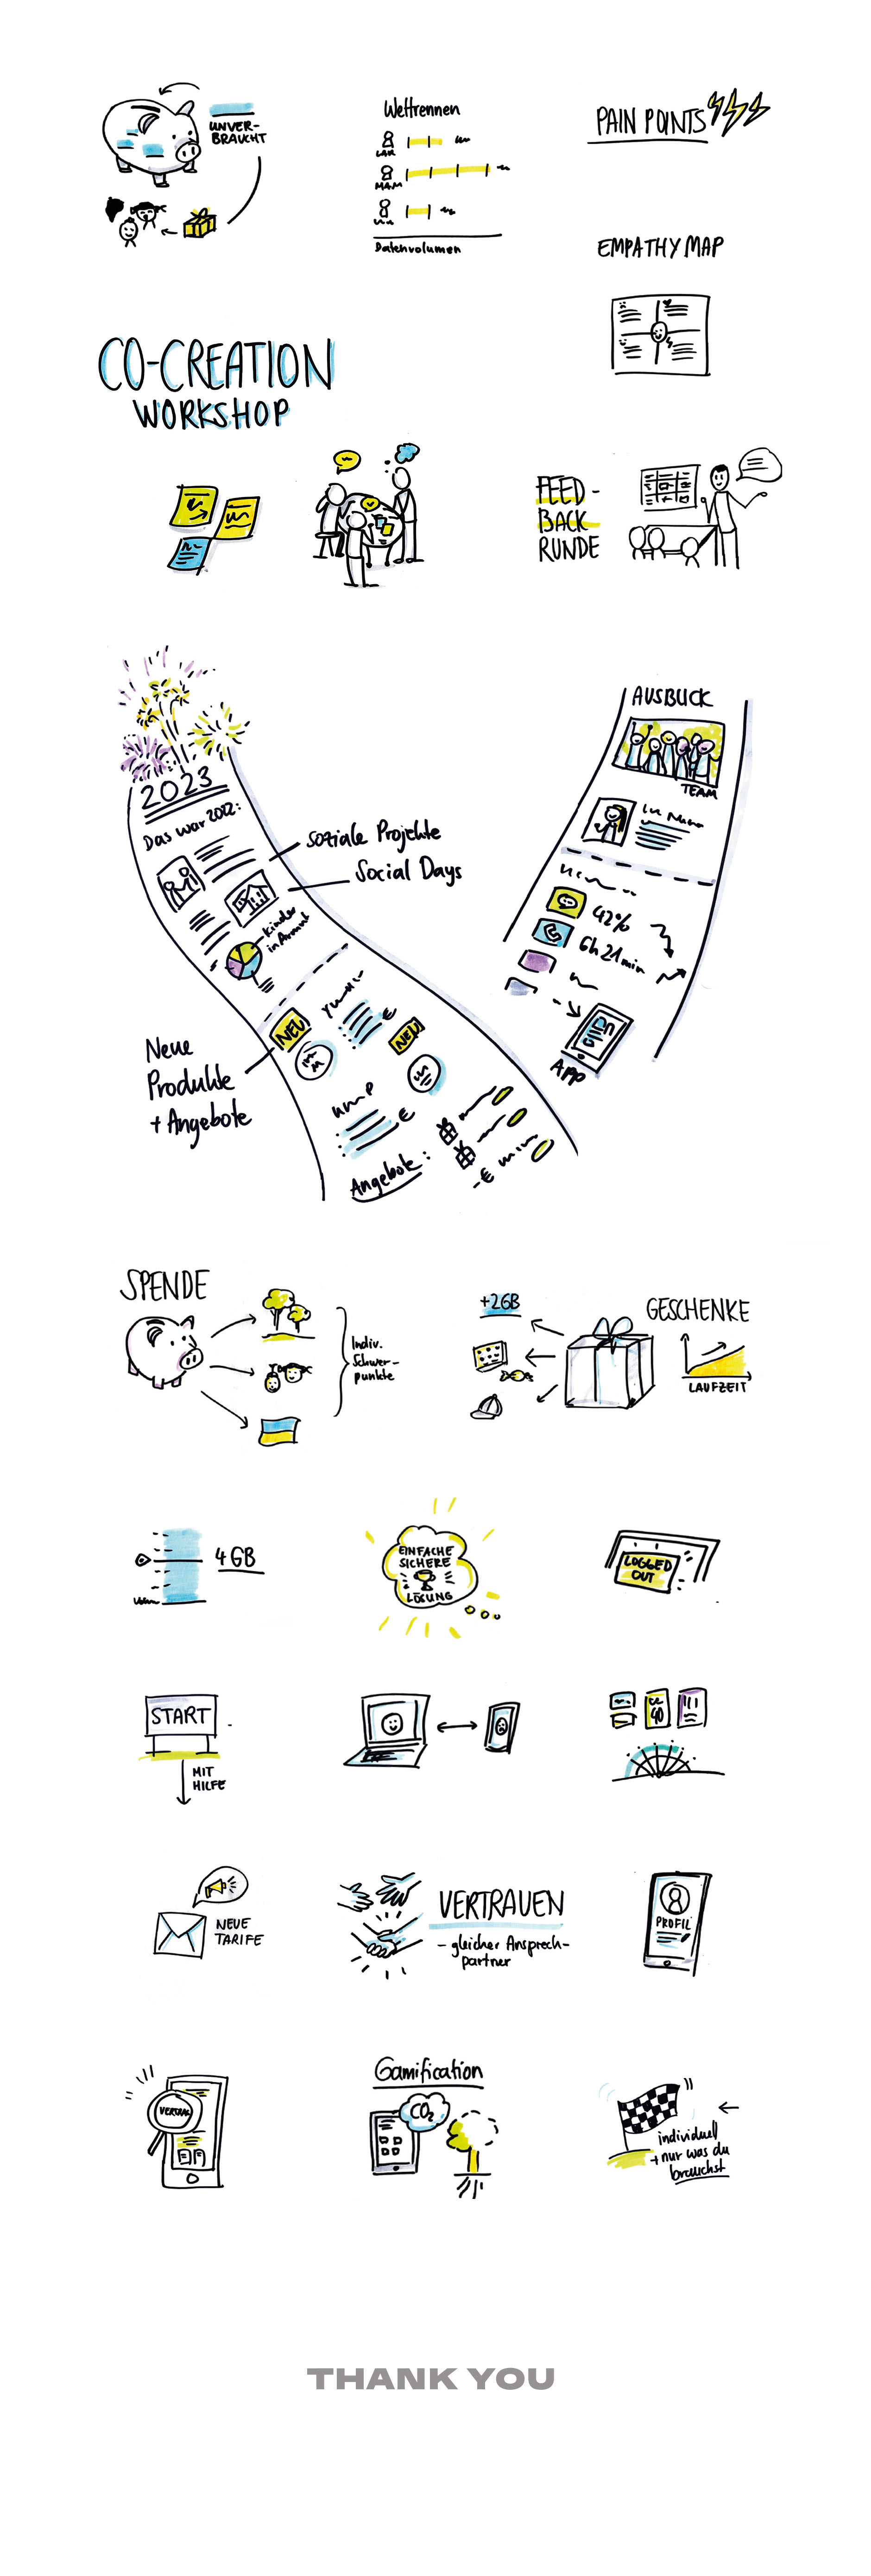 UNVER-
BRAUCHT
Wettrennen
MAM
Datenvolumen
PAIN POINTS
EMPATHY MAP
CO-CREATION
WORKSHOP
FEED-
BACK
RUNDE
2023
Das war 2022:
Soziale Projekte
Social Days
Kinder
in Armut
NEU
NEU
Neue
Produkte
+ Angebote
€
€
Angebote:
-€
AUSBLICK
TEAM
42%
6h 21min
APP
SPENDE
Indiv.
Schwer-
punkte
+2GB
GESCHENKE
LAUFZEIT
4 GB
EINFACHE
SICHERE
LÖSUNG
LOGGED
OUT
START
MIT
HILFE
NEUE
TARIFE
VERTRAUEN
- gleicher Ansprech-
partner
PROFIL
VERTRAG
Gamification
CO2
individuell
+ nur was du
brauchst
THANK YOU